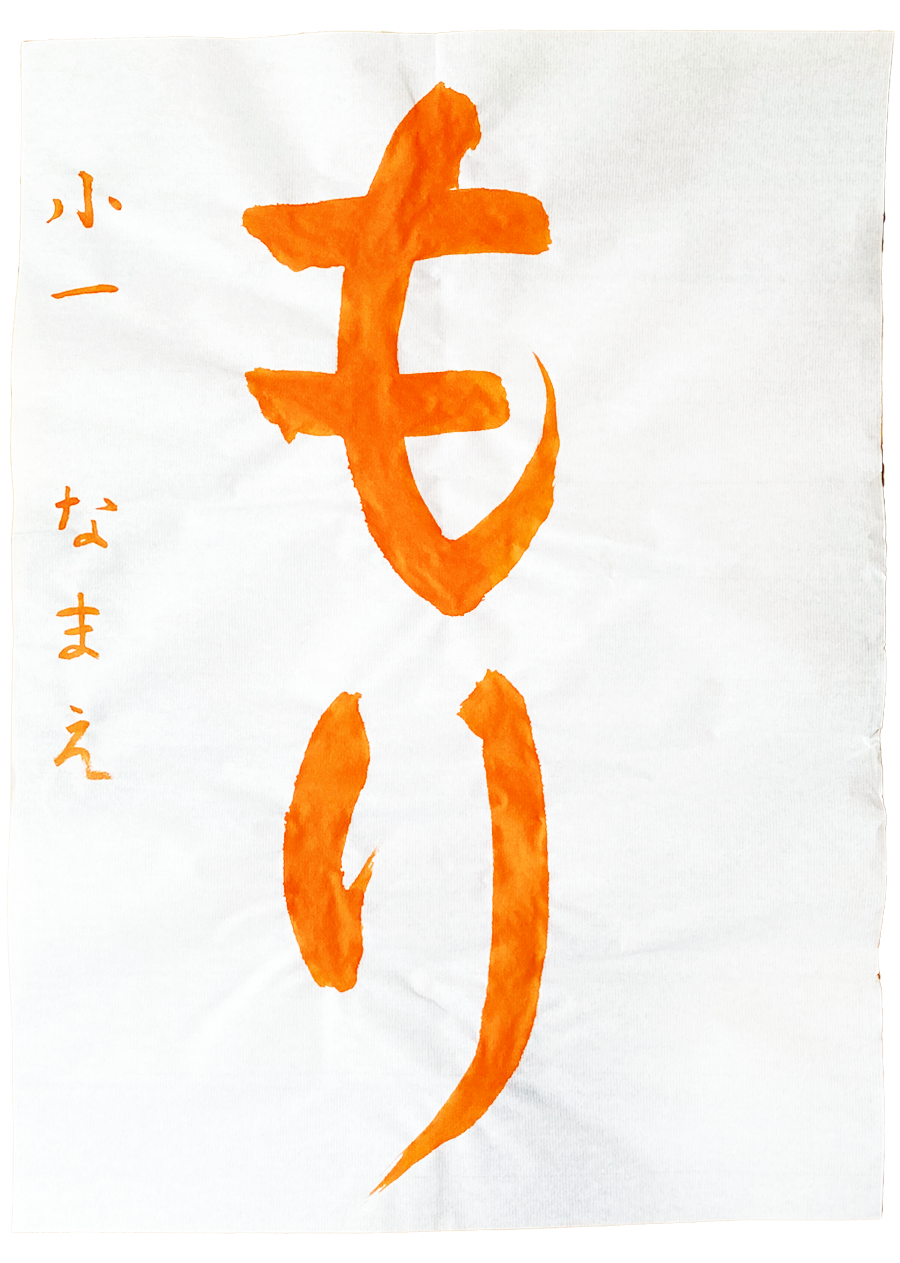 もり
小一 なまえ